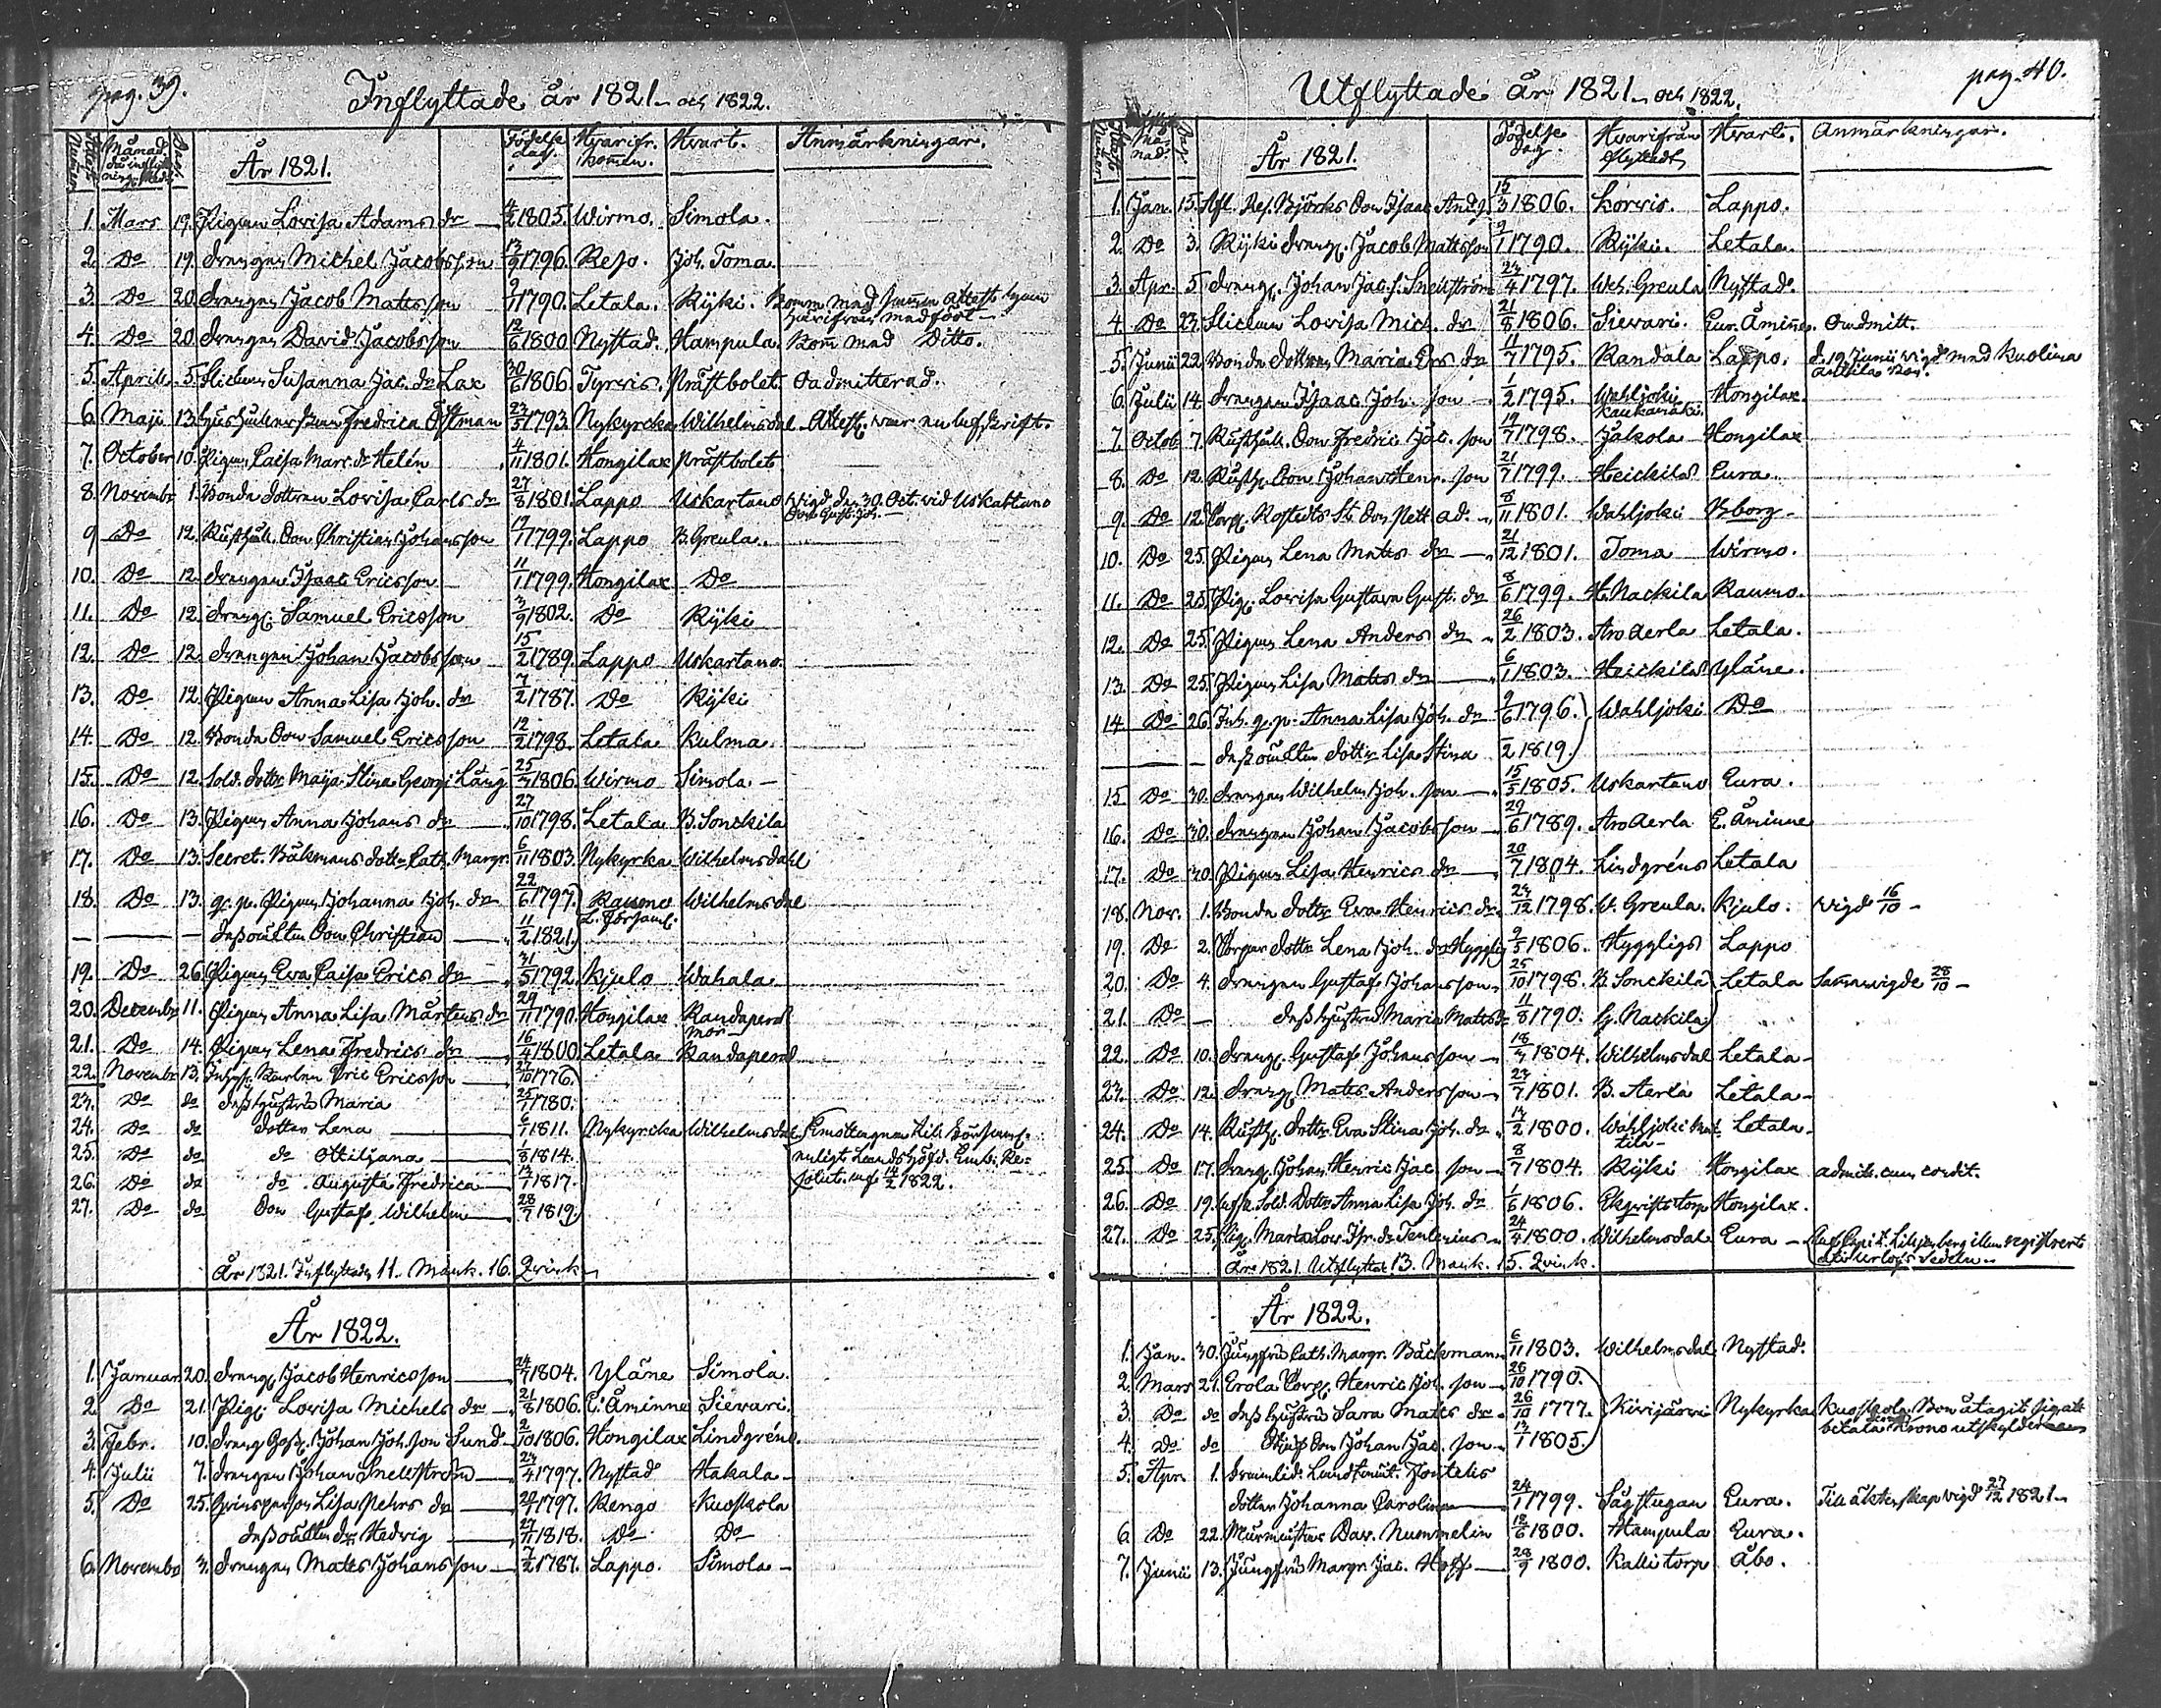 pag. 39.
Inflyttade år 1821. och 1822.
Månad
Födelse dag. Hvarifr. komen. Hvart. Anmärkningar.
År 1821.
1. Mars 19. Pigan Lovisa Adams dr 4/2 1805. Wirmo. Simola.
2. Do 19. drengen Michel Jacobsson 13/9 1796. Reso. Joh. Toma.
3. Do 20. drengen Jacob Mattsson 9/1 1790. Letala. Kÿki. Kom med samma attest som
härifrån medfört
4. Do 20. drengen David Jacobsson 12/6 1800. Nystad. Hampula. Kom med Ditto.
5. Aprill 5. flickan Susanna Jac. dr Lax 30/6 1806. Tyrvis. Prästbolet. Oadmitterad.
6. Maji 13. Hushållerskan Fredrica Östman 23/5 1793. Nykyrcka Wilhelmsdal.
7. October 10. Pigan Caisa Marc. dr Helén 4/11 1801. Hongilax Prästbolet
8. Novembr 1. Bonde dottren Lovisa Carls dr 27/8 1801. Lappo Uskartano Wigd den 30 Oct. vid Uskartano
9 Do 12. Rusthåll. Son Christian Johansson 17/1 1799. Lappo B. Greula.
10. Do 12. drengen Isaac Ericsson 11/1 1799. Hongilax Do
11. Do 12. dreng. Samuel Ericsson 3/9 1802. Do Kÿki
12. Do 12. drengen Johan Jacobsson 15/2 1789. Lappo Uskartano.
13. Do 12. Pigan Anna Lisa Joh. dr 7/2 1787. Do Kÿki
14. Do 12. Bonde Son Samuel Ericsson 12/2 1798. Letala Kulma.
15. Do 12. Sold. dottr Maja Stina Georgi Lång 25/3 1806. Wirmo Simola.
16. Do 13. Pigan Anna Johans dr 27/10 1798. Letala B. Sonckila
17. Do 13. Secret. Bäkmans dottr Cath. Margr. 6/11 1803. Nykyrka Wilhelmsdahl
18. Do 13. qv. p. Pigan Johanna Joh. dr 22/6 1797. Raumo Wilhelmsdal
L. Församl.
dess oäkten Son Christian 11/2 1821.
19. Do 26. Pigan Eva Caisa Erics dr 31/5 1792. Kjulo Wahala.
20. Decembr 11. Pigan Anna Lisa Mårtens dr 29/11 1790. Hongilax Randapere
21. Do 14. Pigan Lena Fredrics dr 16/4 1800. Letala Randapere
22. Novembr 13. Karlen Eric Ericsson 27/10 1776.
23. Do do dess hustru Maria 25/1 1780.
24. Do do dotter Lena 6/1 1811. Nykyrcka Wilhelmsdal Emottagne till församl.
25. Do do do Ottiliana 1/8 1814. enligt Landshöfd. Embi. Re-
26. Do do do Augusta Fredrica 13/7 1817. solut. af 14/2 1822.
27. Do do Son Gustaf Wilhelm 28/7 1819.
År 1821. Inflyttade 11. Mank. 16. Qvink.
År 1822.
1. Januar 20. dreng. Jacob Henricsson 24/7 1804. Yläne Simola.
2. Do 21. Pig. Lovisa Michels dr 21/8 1806. E. Åminne Sievari.
3. Febr. 10. dreng Goss. Johan Joh. son Sund 2/10 1806. Hongilax Lindgréns.
4. Julii 7. drengen Johan Snellström 23/4 1797. Nystad Hakala
5. Do 25. Lisa Pehrs dr 20/1 1797. Rengo Kuoskola
dess oäkten dr Hedvig 27/11 1818. Do Do
6. Novembr 3. drengen Matts Johansson 7/2 1787. Lappo. Simola
pag. 40.
Utflyttade år 1821. och 1822.
Månad. Dag. Födelse dag. Hvarifrån flyttadt Hvart. Anmärkningar.
År 1821.
1. Jan. 15. Afl. Res. Björks Son Isaac Andr. 15/3 1806. Korvis. Lappo.
2. Do 3. Kÿki dreng. Jacob Mattsson 9/1 1790. Kÿki. Letala.
3. Apr. 5 dreng. Johan Jac. s. Snellström 23/4 1797. Wes. Greula Nystad.
4. Do 23. flickan Lovisa Mich. dr 21/8 1806. Sievari. Eur. Åmine. Oadmitt.
5. Junii 22. Bonde dottren Maria Ers dr 11/7 1795. Randala Lappo. d. 19 Junii vigd med Kuolima
Anttila Bon.
6. Julii 14. drengen Isaac Joh. son 1/2 1795. Wahljoki Hongilax.
7. Octob. 7. Rusthåll. Son Fredric Jac. son 19/7 1798. Jakola Hongilax
8. Do 12. Rusth. Son Johan Henr. son 21/7 1799. Heickilä Eura.
9. Do 12. Corp. Rostedts St. Son Pett. Ad. 8/11 1801. Wahljoki B:borg
10. Do 25. Pigan Lena Matts dr 21/12 1801. Toma Wirmo.
11. Do 25. Pig. Lovisa Gustava Gust. dr 8/6 1799. H. Nackila Raumo.
12. Do 25. Pigan Lena Anders dr 26/2 1803. Aro Aerla Letala.
13. Do 25. Pigan Lisa Matts dr 6/1 1803. Heickilä Yläne.
14. Do 26. Inh. q. p. Anna Lisa Joh. dr 9/6 1796. Wahljoki Do
dess oäkten dottr Lisa Stina /2 1819.
15 Do 30. drengen Wilhelm Joh. son 15/5 1805. Uskartano Eura.
16. Do 30. drengen Johan Jacobsson 29/6 1789. Aro Aerla E. Åminne
17. Do 30. Pigan Lisa Henrics dr 20/7 1804. Lindgréns Letala
18. Nov. 1. Bonde dottr Eva Henrics dr 23/12 1798. W. Greula. Kjulo. Wigd 16/10
19. Do 2. Torpar dottr Lena Joh. dr Hygglig 9/5 1806. Hyggligs Lappo
20. Do 4. drengen Gustaf Johansson 25/10 1798. B. Sonckila Letala Samanvigde 28/10
21. Do dess hustru Maria Matts dr 11/8 1790. G. Nackila
22. Do 10. dreng. Gustaf Johansson 18/3 1804. Wilhelmsdal Letala
23. Do 12. dreng. Matts Andersson 23/7 1801. B. Aerla Letala
24. Do 14. Rusth. dottr Eva Stina Joh. dr 14/2 1800. Wahljoki Letala
25. Do 17. dreng. Johan Henric Jac. son 8/7 1804. Kÿki Hongilax admitt. cum condit.
26. Do 19. Sold. Dottr Anna Lisa Joh. dr 1/6 1806. Ekqvists torp Hongilax.
27. Do 25. Pig. Maria Lov. Isr. dr Tenlenius 24/4 1800. Wilhelmsdal Eura
År 1821. Utflyttat 13. Mank. 15. Qvink.
År 1822.
1. Jan. 30. Jungfru Cath. Margr. Bäckman 6/11 1803. Wilhelmsdal Nystad.
2. Mars 21. Erola Torp. Henric Joh. son 26/10 1790.
3. Do do dess hustru Sara Matts dr 26/10 1777. Kivijärvi Nykyrka Kuoskola Bon åtagit sig att
betala Krono utskylderna
4. Do do Styf Son Johan Jac. son 13/1 1805.
5. Apr. 1. Framlid. Landtmät. Fontelis
dotter Johanna Carolina 24/1 1799. Sågstugan Eura. Till äktenskap vigd 27/12 1821.
6. Do 22. Murmästar Dav. Nummelin 12/6 1800. Hampula Eura.
7. Junii 13. Jungfru Margr. Jac. Hoff 28/9 1800. Kallitorp Åbo.